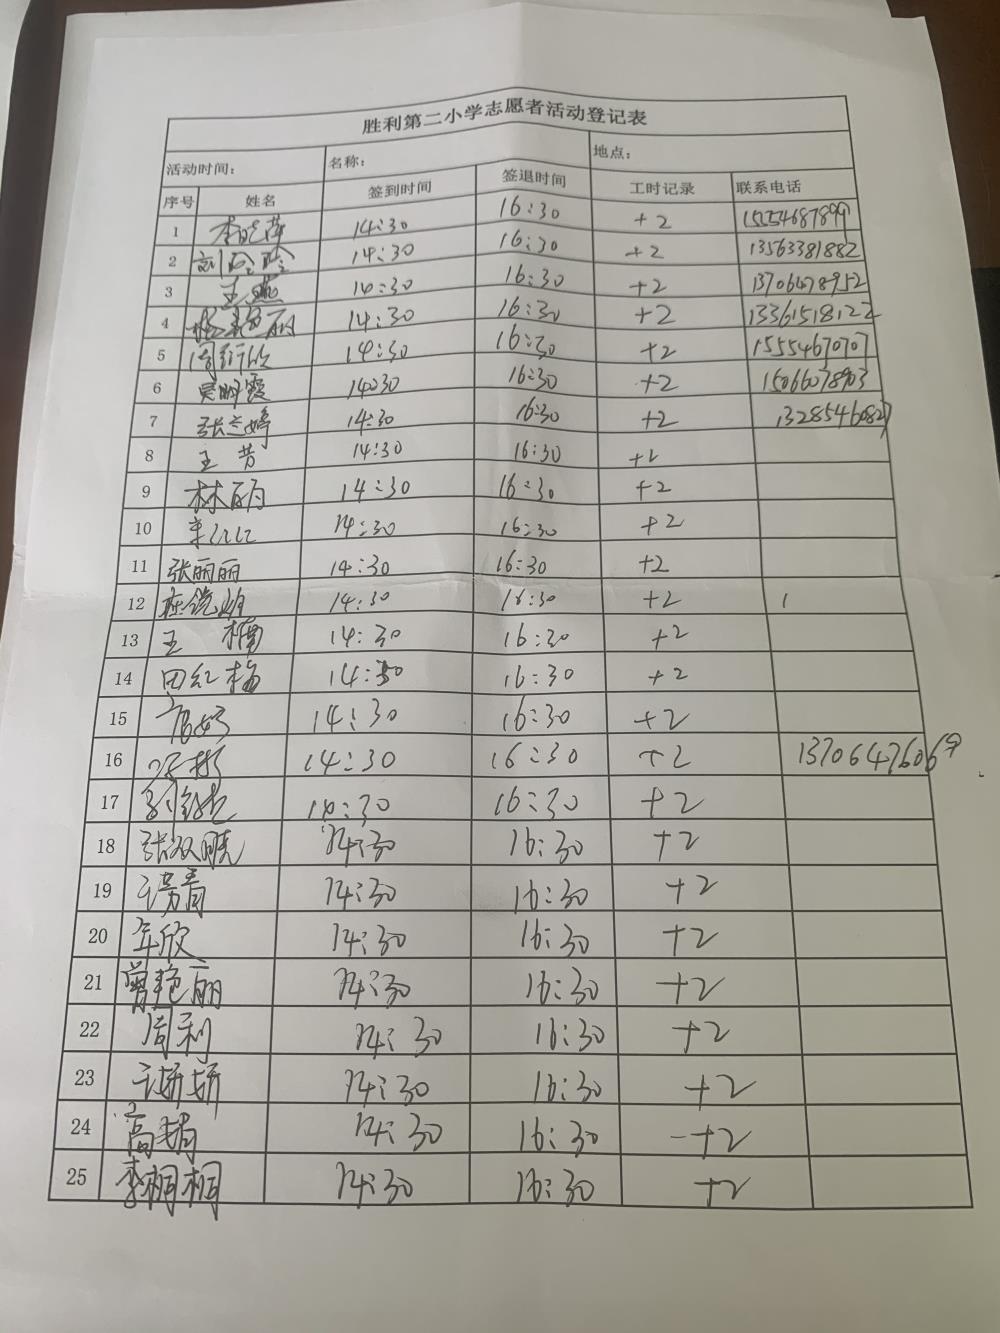 胜利第二小学志愿者活动登记表
活动时间： 名称： 地点：
序号 姓名 签到时间 签退时间 工时记录 联系电话
1 李晓萍 14:30 16:30 +2 15554687899
2 刘玲玲 14:30 16:30 +2 13563381882
3 王燕 14:30 16:30 +2 13706478952
4 杨艳丽 14:30 16:30 +2 13361518122
5 周 14:30 16:30 +2 15554670707
6 吴明霞 14:30 16:30 +2 15066078903
7 张兰婷 14:30 16:30 +2 13285460827
8 王芳 14:30 16:30 +2
9 林丽 14:30 16:30 +2
10 14:30 16:30 +2
11 张丽丽 14:30 16:30 +2
12 14:30 16:30 +2
13 王楠 14:30 16:30 +2
14 田红梅 14:30 16:30 +2
15 14:30 16:30 +2
16 14:30 16:30 +2 13706476069
17 14:30 16:30 +2
18 张双晓 14:30 16:30 +2
19 14:30 16:30 +2
20 年欣 14:30 16:30 +2
21 曾艳丽 14:30 16:30 +2
22 周利 14:30 16:30 +2
23 妍妍 14:30 16:30 +2
24 高婧 14:30 16:30 +2
25 李桐桐 14:30 16:30 +2